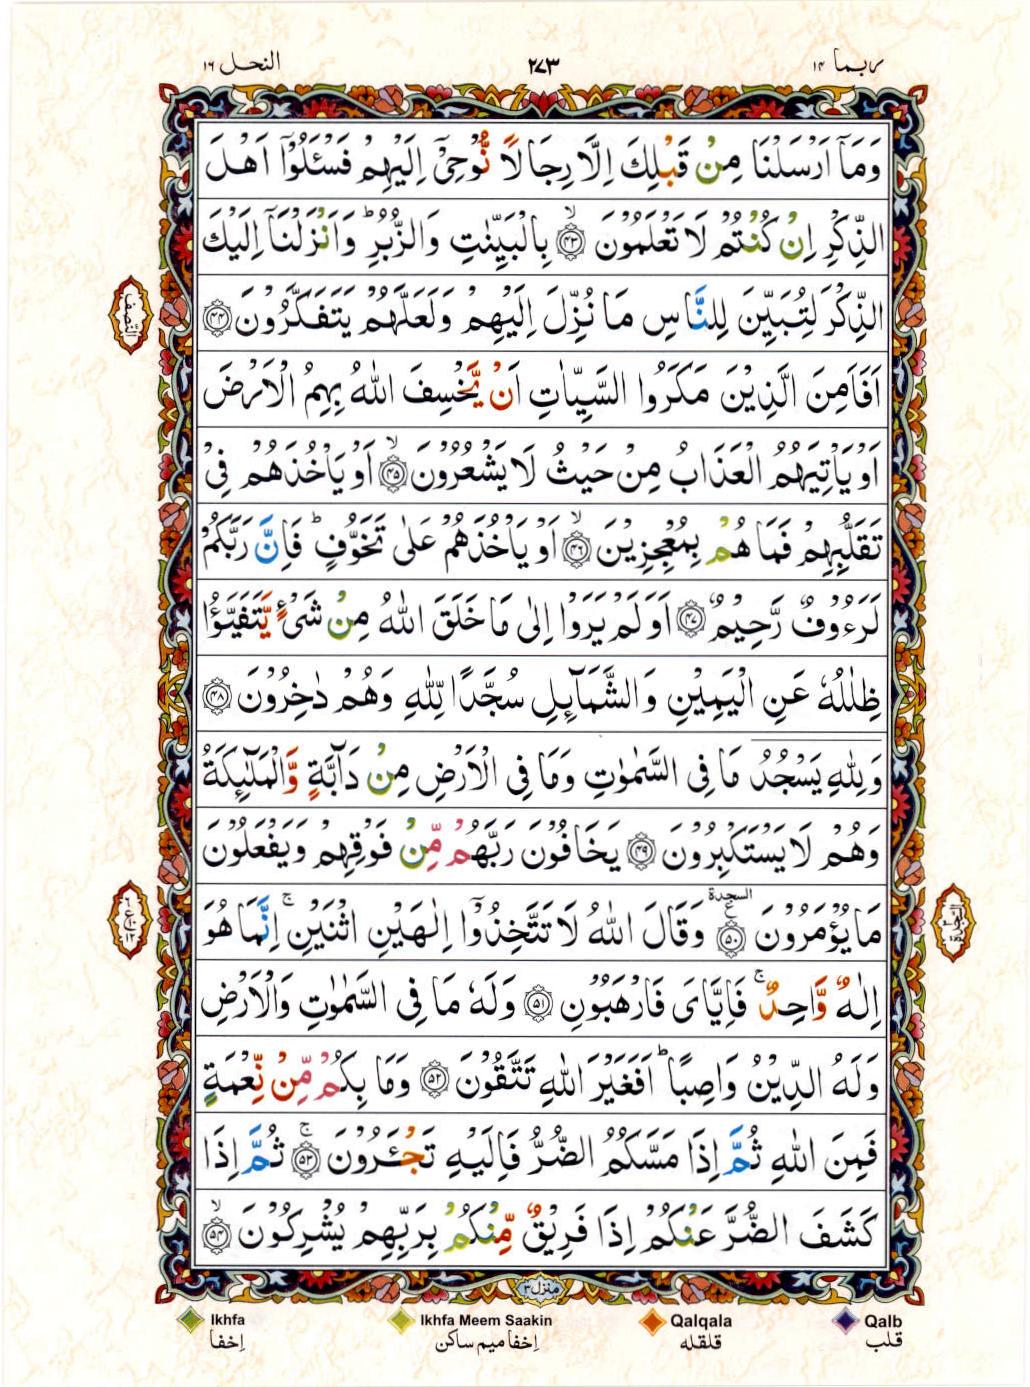 ربما ١٤
٢٧٣
النحل ١٦
وَمَاۤ اَرْسَلْنَا مِنْ قَبْلِكَ اِلَّا رِجَالًا نُّوْحِیْۤ اِلَیْهِمْ فَسْئَلُوْۤا اَهْلَ
الذِّكْرِ اِنْ كُنْتُمْ لَا تَعْلَمُوْنَۙ ﴿۴۳﴾ بِالْبَیِّنٰتِ وَالزُّبُرِؕ وَاَنْزَلْنَاۤ اِلَیْكَ
الذِّكْرَ لِتُبَیِّنَ لِلنَّاسِ مَا نُزِّلَ اِلَیْهِمْ وَلَعَلَّهُمْ یَتَفَكَّرُوْنَ ﴿۴۴﴾
النصف
اَفَاَمِنَ الَّذِیْنَ مَكَرُوا السَّیِّاٰتِ اَنْ یَّخْسِفَ اللّٰهُ بِهِمُ الْاَرْضَ
اَوْ یَاْتِیَهُمُ الْعَذَابُ مِنْ حَیْثُ لَا یَشْعُرُوْنَۙ ﴿۴۵﴾ اَوْ یَاْخُذَهُمْ فِیْ
تَقَلُّبِهِمْ فَمَا هُمْ بِمُعْجِزِیْنَۙ ﴿۴۶﴾ اَوْ یَاْخُذَهُمْ عَلٰی تَخَوُّفٍؕ فَاِنَّ رَبَّكُمْ
لَرَءُوْفٌ رَّحِیْمٌ ﴿۴۷﴾ اَوَلَمْ یَرَوْا اِلٰی مَا خَلَقَ اللّٰهُ مِنْ شَیْءٍ یَّتَفَیَّؤُا
ظِلٰلُهٗ عَنِ الْیَمِیْنِ وَالشَّمَآئِلِ سُجَّدًا لِّلّٰهِ وَهُمْ دٰخِرُوْنَ ﴿۴۸﴾
وَلِلّٰهِ یَسْجُدُ مَا فِی السَّمٰوٰتِ وَمَا فِی الْاَرْضِ مِنْ دَآبَّةٍ وَّالْمَلٰٓئِكَةُ
وَهُمْ لَا یَسْتَكْبِرُوْنَ ﴿۴۹﴾ یَخَافُوْنَ رَبَّهُمْ مِّنْ فَوْقِهِمْ وَیَفْعَلُوْنَ
مَا یُؤْمَرُوْنَ ﴿۵۰﴾ السجدة ع وَقَالَ اللّٰهُ لَا تَتَّخِذُوْۤا اِلٰهَیْنِ اثْنَیْنِۚ اِنَّمَا هُوَ
السجدة ٣
٦ ع ١٢
اِلٰهٌ وَّاحِدٌۚ فَاِیَّایَ فَارْهَبُوْنِ ﴿۵۱﴾ وَلَهٗ مَا فِی السَّمٰوٰتِ وَالْاَرْضِ
وَلَهُ الدِّیْنُ وَاصِبًاؕ اَفَغَیْرَ اللّٰهِ تَتَّقُوْنَ ﴿۵۲﴾ وَمَا بِكُمْ مِّنْ نِّعْمَةٍ
فَمِنَ اللّٰهِ ثُمَّ اِذَا مَسَّكُمُ الضُّرُّ فَاِلَیْهِ تَجْئَرُوْنَۚ ﴿۵۳﴾ ثُمَّ اِذَا
كَشَفَ الضُّرَّ عَنْكُمْ اِذَا فَرِیْقٌ مِّنْكُمْ بِرَبِّهِمْ یُشْرِكُوْنَۙ ﴿۵۴﴾
منزل ٣
Ikhfa Ikhfa Meem Saakin Qalqala Qalb
اِخفا اِخفا میم ساکن قلقله قلب